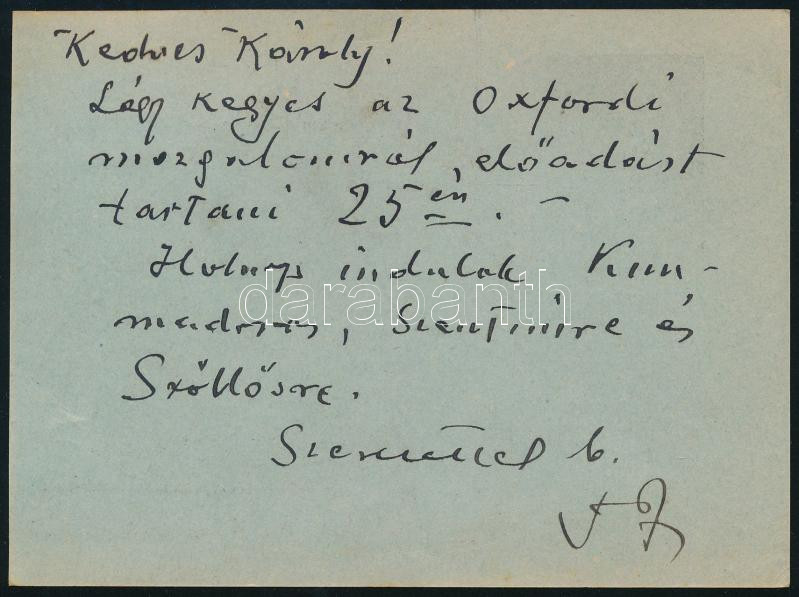 Kedves Károly!
Légy kegyes az Oxfordi
mozgalomról előadást
tartani 25 én. –
Holnap indulok Kun-
madaras, Szentimre és
Szőllősre.
Szeretettel b.
darabanth